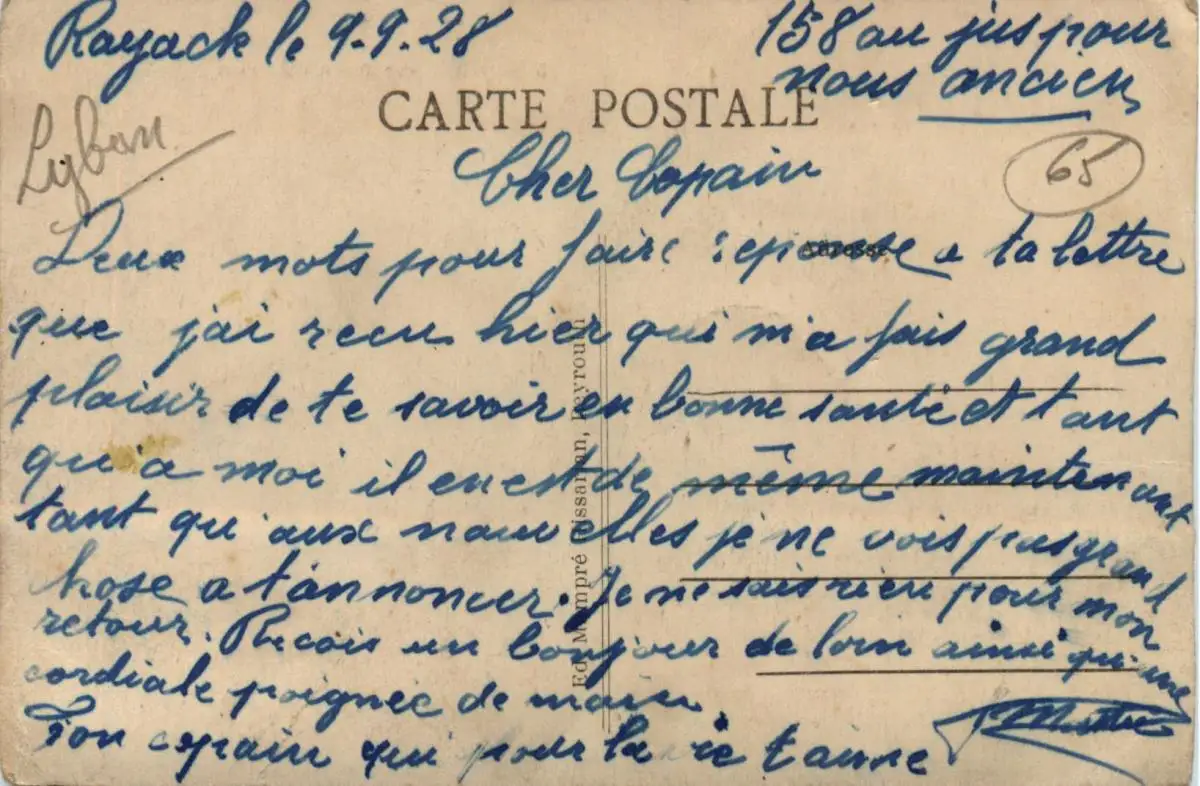 Rayack le 9.9.28
158 au jus pour
nous anciens
CARTE POSTALE
Lyban
65
Cher Copain
Adresse
Deux mots pour faire reponse a ta lettre
que j'ai recu hier qui m'a fais grand
plaisir de te savoir en bonne santé et tant
qu'a moi il en est de même maintenant
tant qu'aux nouvelles je ne vois pas grand
chose a t'annoncer. Je ne sais rien pour mon
retour. Recois un bonjour de loin ainsi qu'une
cordiale poignée de main.
Ton copain qui pour la vie t'aime
Beyrouth